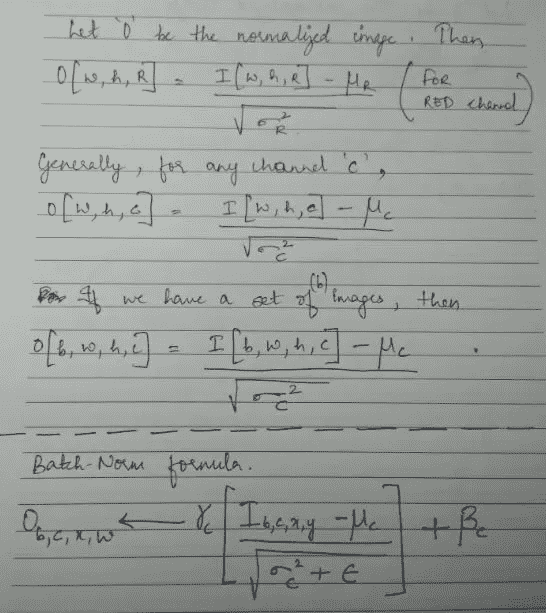 Let 'O' be the normalized image. Then,
O[w,h,R] = I[w,h,R] - μ_R / √σ_R^2 (FOR RED channel)
Generally, for any channel 'c',
O[w,h,c] = I[w,h,c] - μ_c / √σ_c^2
If we have a set of (b) images, then
O[b,w,h,c] = I[b,w,h,c] - μ_c / √σ_c^2 .
Batch-Norm formula.
O_b,c,x,w ← γ_c [ I_b,c,x,y - μ_c / √σ_c^2 + ε ] + β_c